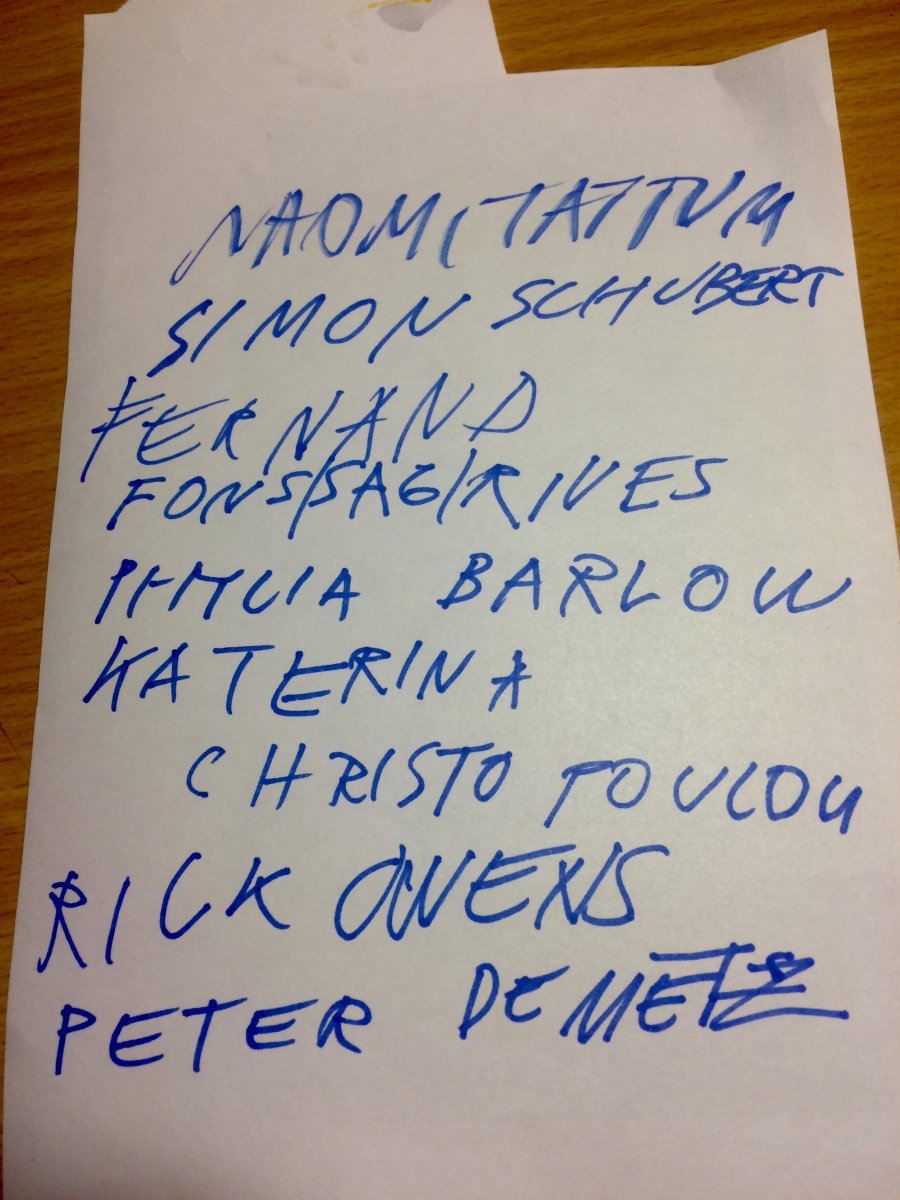 NAOMI TATTUM
SIMON SCHUBERT
FERNAND
FONS/SAG/RIVES
BARLOW
KATERINA
CHRISTOPOULOU
RICK OWENS
PETER DEMETZ